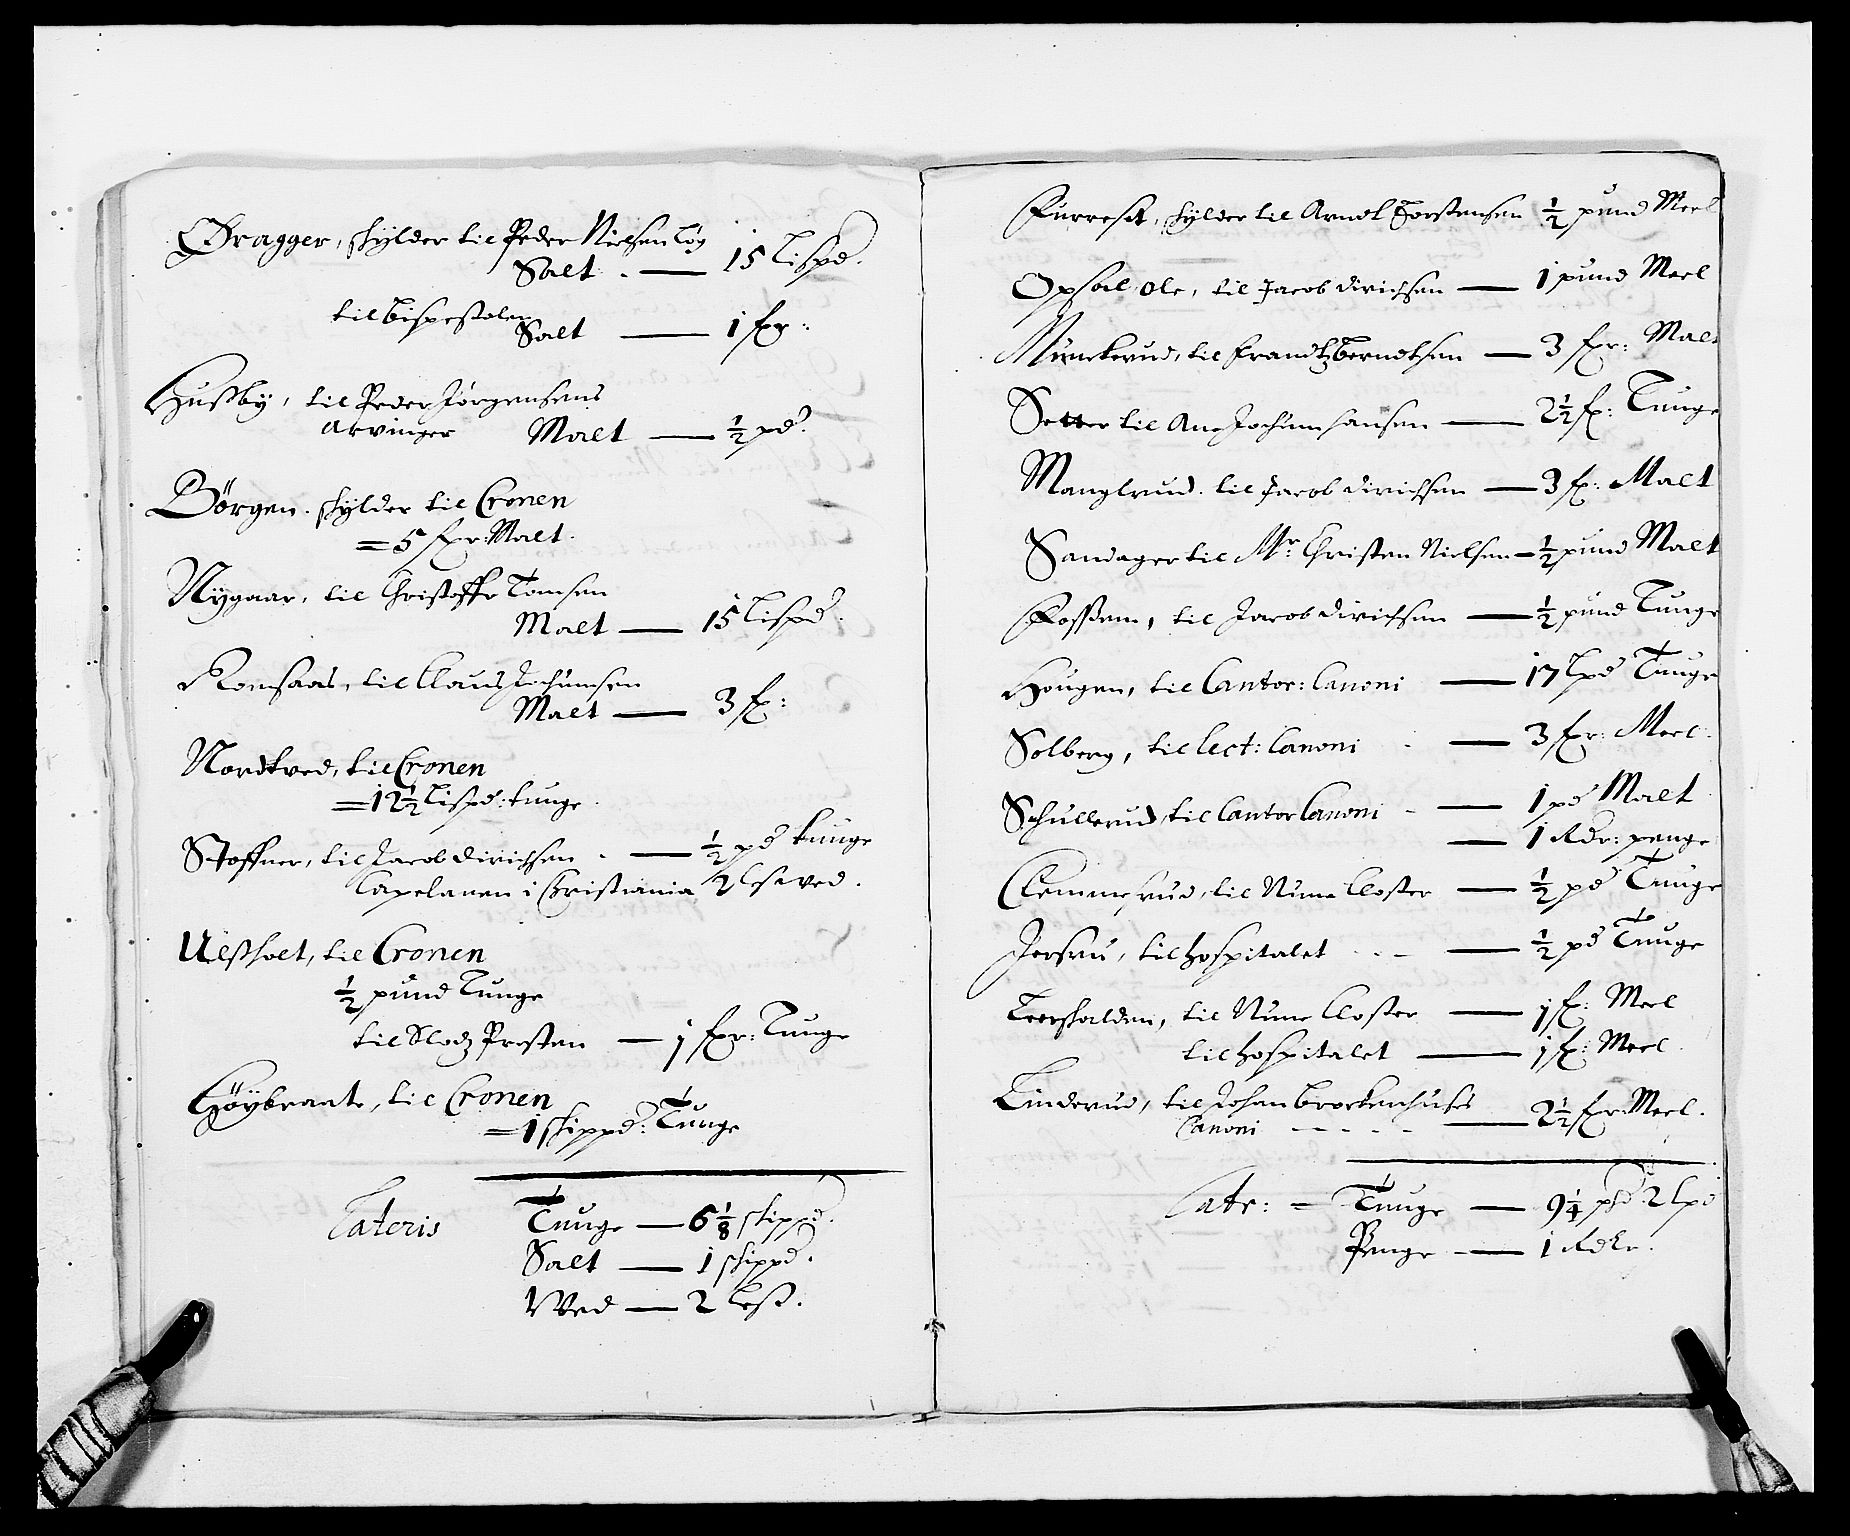 Øragger, skylder til Peder Nielsen Løg
Salt - — 15 Lispd.
til bispestolen
Salt — 1 fr:
Hussby, til Peder Jørgensens
Arvinger Malt — ½ pd.
Børgen. skylder til Cronen
= 5 fr: Malt.
Nygaar, til Christoffr Tomsen
Malt — 15 Lispd.
Romsaas, til Claus Jochumsen
Malt — 3 f:
Nordtved, til Cronen
= 12½ Lispd: tunge.
Stoffner, til Jacob Dirichsen - — ½ pd tunge
Capelanen i Christiania 2 lesz ved.
Ulssholt, til Cronen
½ pund Tunge
til Slodz Presten — 1 fr: Tunge
Høybraate, til Cronen
= 1 skippd: Tunge
Lateris Tunge — 6⅛ skippd.
Salt — 1 skippd.
Wed — 2 less.
Furreset, skylder til Arndt Torstensen ½ pund Meel
Opsal Ole, til Jacob Dirichsen — 1 pund Meel
Munckerud, til Frandtz Berndtsen — 3 fr: Malt
Setter til Ane Jochum Hansen — 2½ f: Tunge
Manglrud. til Jacob Dirichsen — 3 f: Malt
Sandager til Mr Christen Nielsen — ½ pund Malt
Flossem, til Jacob Dirichsen — ½ pund Tunge
Hougen, til Cantor: Canoni — 17 lpd Tunge
Solberg, til lect: Canoni - — 3 fr: Meel.
Schullerud, til Cantor Canoni - — 1 pd Malt
— 1 Rdr: penge
Clemmesrud, til Nunne Closter — ½ pd Tunge
Jersru, til Hospitalet - - - — ½ pd Tunge
Teerskalden, til Nunne Closter — 1 f: Meel
til Hospitalet — 1 f: Meel.
Linderud, til Johan Brockenhuses
Canoni - - - - — 2½ fr: Meel.
Latr: = Tunge — 9¼ pd 2 lpd
Penge - — 1 Rdlr.